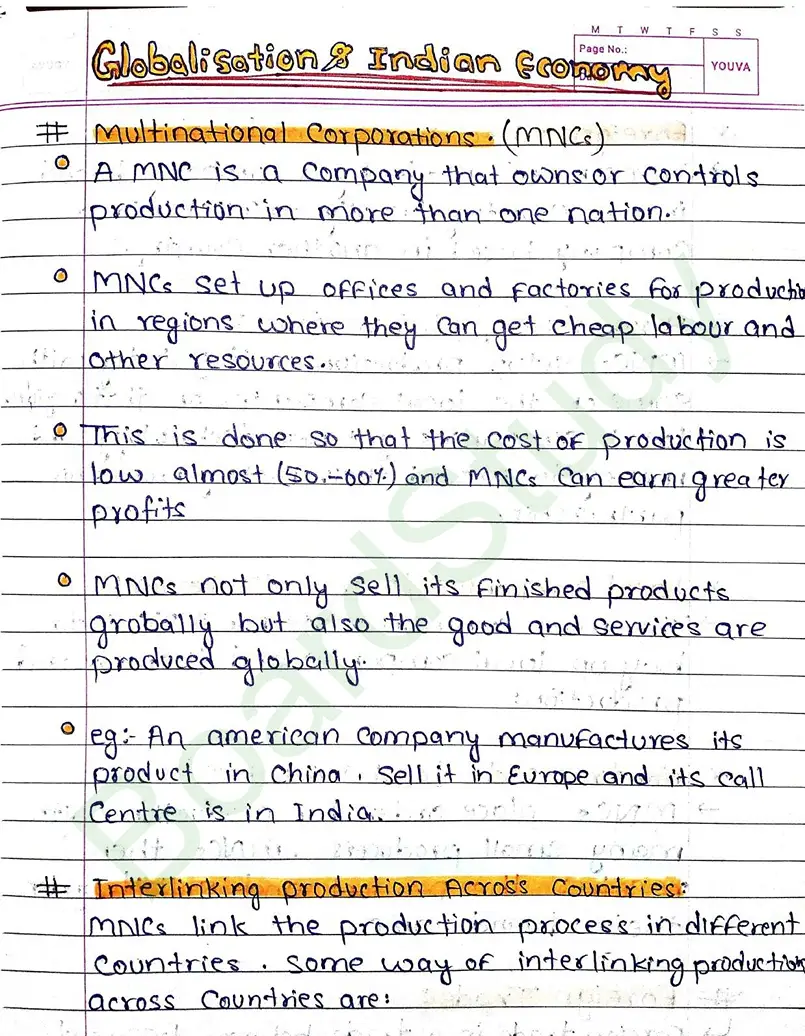 M T W T F S S
Page No.:
YOUVA
Globalisation & Indian Economy
# Multinational Corporations. (MNCs)
A MNC is a company that owns or controls
production in more than one nation.
MNCs set up offices and factories for production
in regions where they can get cheap labour and
other resources.
This is done so that the cost of production is
low almost (50.-60%) and MNCs can earn greater
profits
MNCs not only sell its finished products
grobally but also the good and services are
produced globally.
eg:- An american company manufactures its
product in China, sell it in Europe and its call
Centre is in India.
# Interlinking production Across Countries:
MNCs link the production process in different
countries. Some way of interlinking production
across Countries are:
BoardStudy